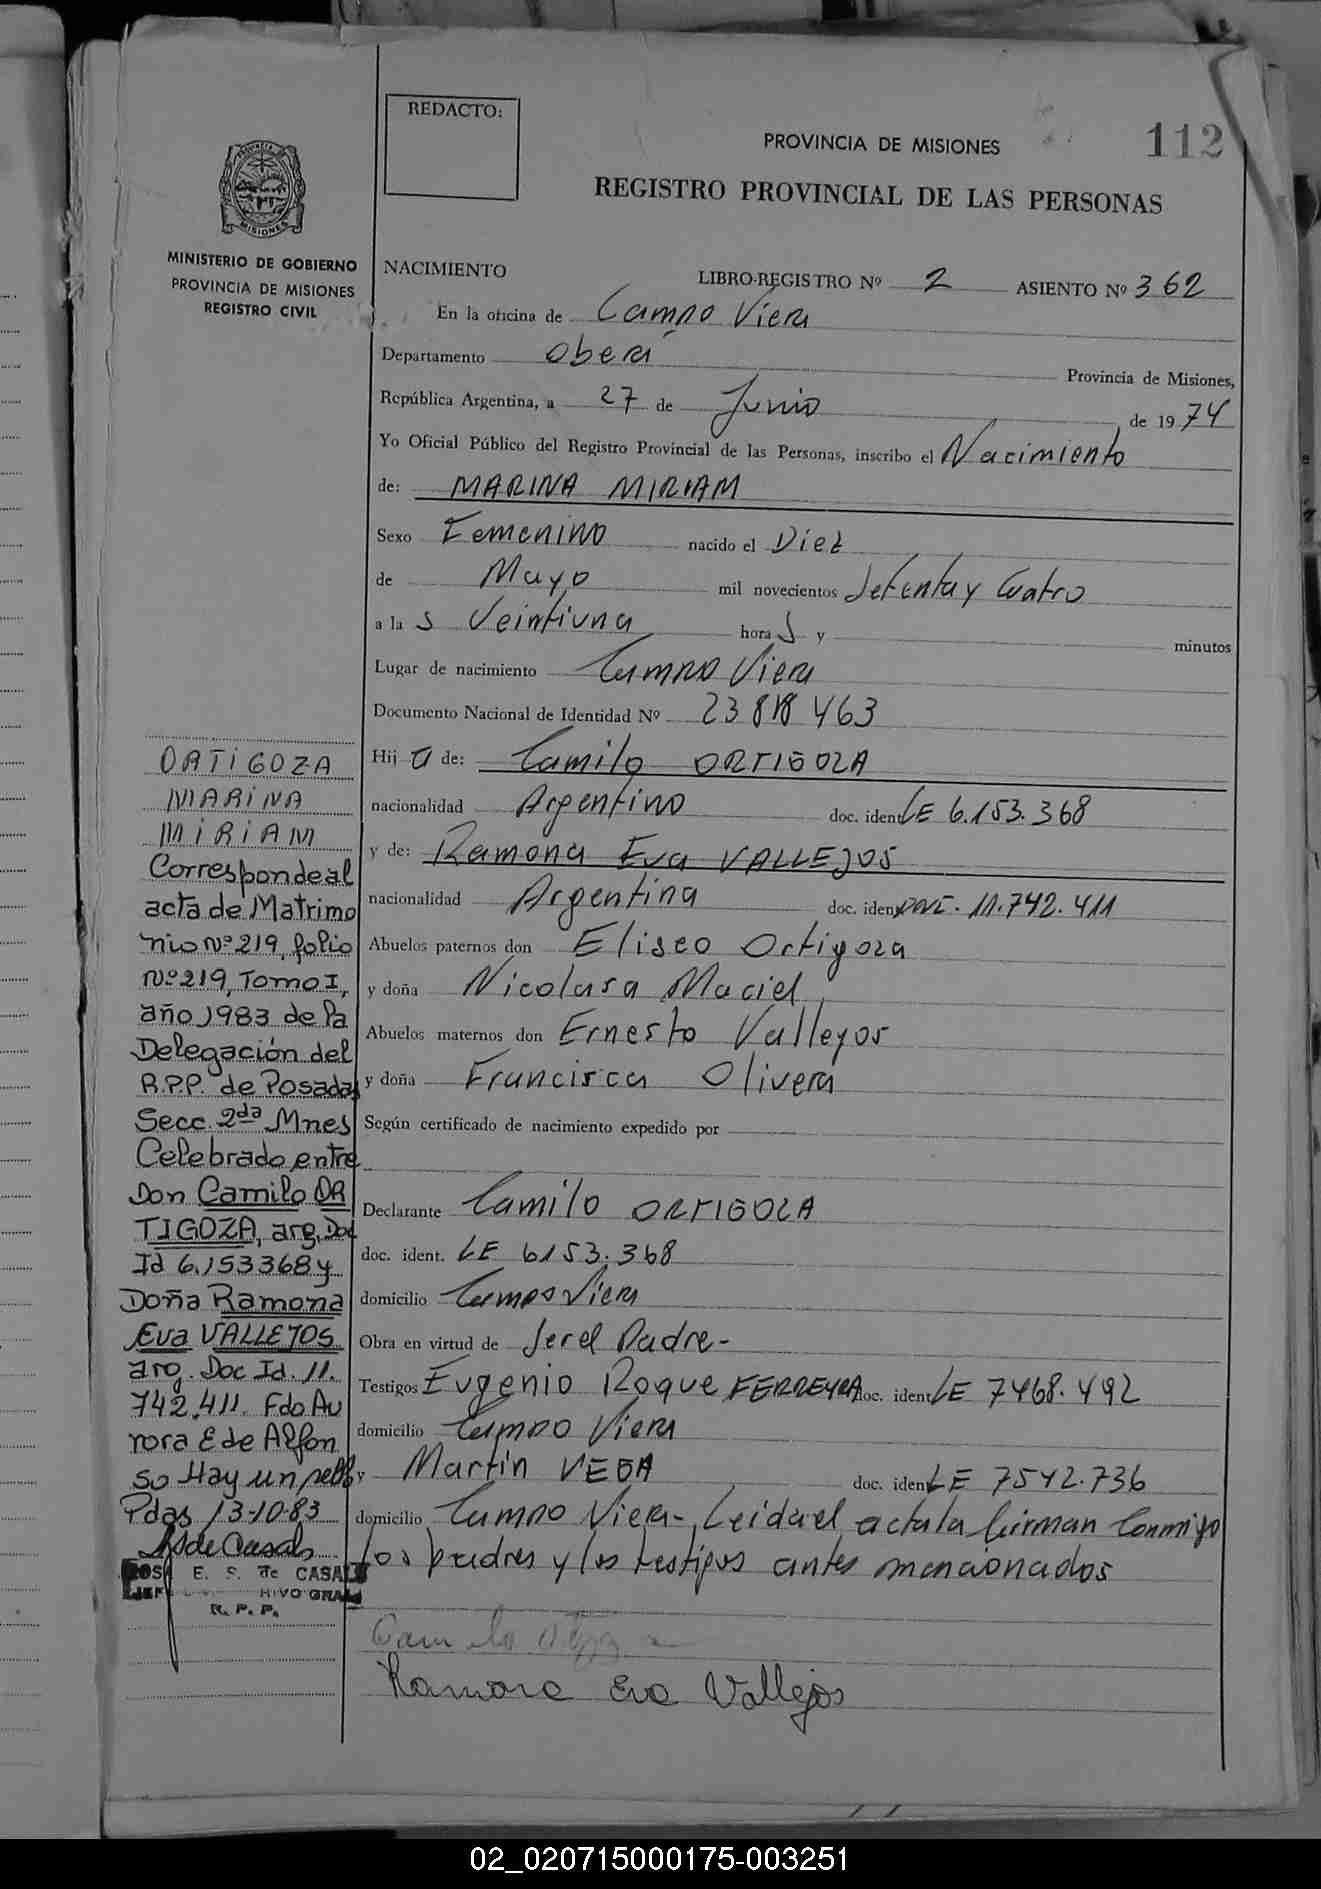 REDACTO:
PROVINCIA DE MISIONES
112
REGISTRO PROVINCIAL DE LAS PERSONAS
MISIONES
MINISTERIO DE GOBIERNO
PROVINCIA DE MISIONES
REGISTRO CIVIL
NACIMIENTO
LIBRO-REGISTRO Nº 2 ASIENTO Nº 362
En la oficina de Campo Viera
Departamento Oberá
Provincia de Misiones,
República Argentina, a 27 de Junio de 1974
Yo Oficial Público del Registro Provincial de las Personas, inscribo el Nacimiento
de: MARINA MIRIAM
Sexo Femenino nacido el Diez
de Mayo mil novecientos Setenta y Cuatro
a la s Veintiuna hora s y minutos
Lugar de nacimiento Campo Viera
Documento Nacional de Identidad Nº 23 818 463
Hij a de: Camilo ORTIGOZA
nacionalidad Argentino doc. iden LE 6.153.368
y de: Ramona Eva VALLEJOS
nacionalidad Argentina doc. iden DNI. 11.742.411
Abuelos paternos don Eliseo Ortigoza
y doña Nicolasa Maciel
Abuelos maternos don Ernesto Valleyos
y doña Francisca Olivera
Según certificado de nacimiento expedido por
Declarante Camilo ORTIGOZA
doc. ident. LE 6153.368
domicilio Campo Viera
Obra en virtud de ser el Padre-
Testigos Eugenio Roque FERREYRA doc. ident LE 7468.492
domicilio Campo Viera
y Martín VEGA doc. iden LE 7542.736
domicilio Campo Viera-, Leida el acta la firman Conmigo
los padres y los testigos antes mencionados
Ramona Eva Vallejos
ORTIGOZA
MARINA
MIRIAM
Corresponde al
acta de Matrimo
nio Nº 219, folio
Nº 219, Tomo I,
año 1983 de la
Delegación del
R.P.P. de Posadas
Secc. 2da Mnes
Celebrado entre
Don Camilo OR
TIGOZA, arg, Doc
Id 6.153368 y
Doña Ramona
Eva VALLEJOS
arg. Doc Id. 11.
742.411. Fdo Au
rora E de Alfon
so Hay un sello
Pdas 13-10-83
de Casals
E. S. de CASALS
R. P. P.
02_020715000175-003251